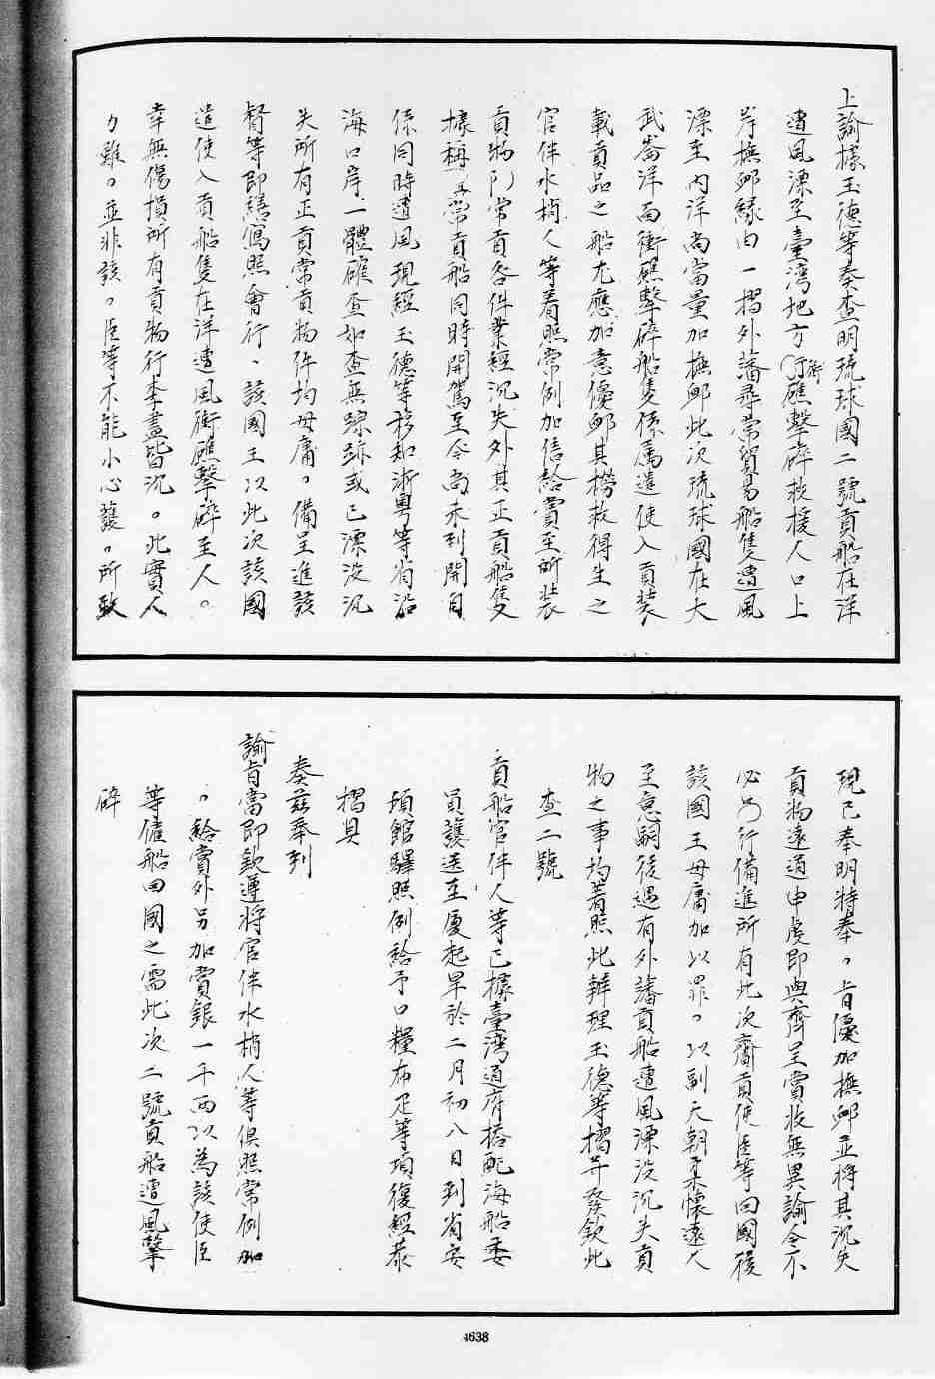 上諭據玉德等奏查明琉球國二號貢船在洋
遭風漂至臺灣地方衝礁擊碎救援人口上
岸撫卹緣由一摺外藩尋常貿易船隻遭風
漂至內洋尚當量加撫卹此次琉球國在大
武崙洋面衝礁擊碎船隻係屬遣使入貢裝
載貢品之船尤應加意優卹其撈救得生之
官伴水梢人等着照常例加倍給賞至所裝
貢物常貢各件業經沉失外其正貢船隻
據稱與常貢船同時開駕至今尚未到開自
係同時遭風現經玉德等移知浙粵等省沿
海口岸一體確查如查無踪跡或已漂沒沉
失所有正貢常貢物件均毋庸〻備呈進該
督等即繕寫照會行〻該國王以此次該國
遣使入貢船隻在洋遭風衝礁擊碎至人〻
幸無傷損所有貢物行李盡皆沉〻此實人
力難〻並非該〻臣等不能小心護〻所致
現已奉明特奉〻旨優加撫卹並將其沉失
貢物遠道申虔即與齎呈賞收無異諭令不
必另行備進所有此次齎貢使臣等回國後
該國王毋庸加以罪〻以副天朝柔懷遠人
至意嗣後遇有外藩貢船遭風漂沒沉失貢
物之事均着照此辦理玉德等摺并發欽此
查二號
貢船官伴人等已據臺灣道府搭配海船委
員護送至廈起旱於二月初八日到省安
頓館驛照例給予口糧布疋等項復經恭
摺具
奏茲奉到
諭旨當即欽遵將官伴水梢人等俱照常例加
〻給賞外另加賞銀一千兩以為該使臣
等僱船回國之需此次二號貢船遭風擊
碎
4638